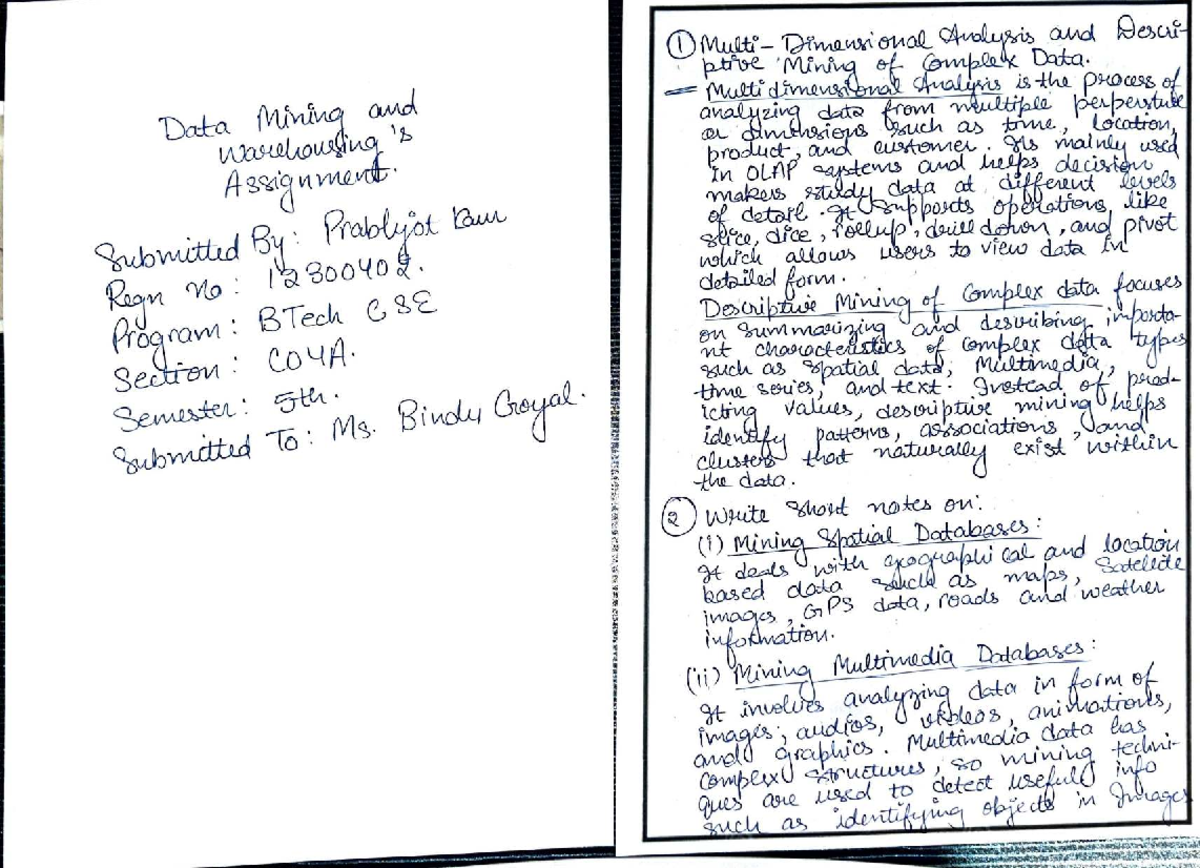 Data Mining and
Warehousing's
Assignment.
Submitted By: Prabhjot Kaur
Regn No: 12300402.
Program: BTech CSE
Section: CO4A.
Semester: 5th.
Submitted To: Ms. Bindu Goyal.
① Multi-Dimensional Analysis and Descri-
ptive Mining of Complex Data.
Multidimensional Analysis is the process of
analyzing data from multiple
or dimensions such as time, location,
product, and customer. Its mainly used
in OLAP systems and helps decision
makers study data at different levels
of detail. It supports operations like
slice, dice, rollup, drill down, and pivot
which allows users to view data in
detailed form.
Descriptive Mining of Complex data focuses
on summarizing and describing importa-
nt characteristics of complex data types
such as spatial data, Multimedia,
time series, and text. Instead of pred-
icting values, descriptive mining helps
identify patterns, associations, and
clusters that naturally exist within
the data.
② Write short notes on:
(i) Mining Spatial Databases:
It deals with geographical and location
based data such as maps, Satellite
images, GPS data, roads and weather
information.
(ii) Mining Multimedia Databases:
It involves analyzing data in form of
images, audios, videos, animations,
and graphics. Multimedia data has
complex structures, so mining techni-
ques are used to detect useful info
such as identifying objects in Images